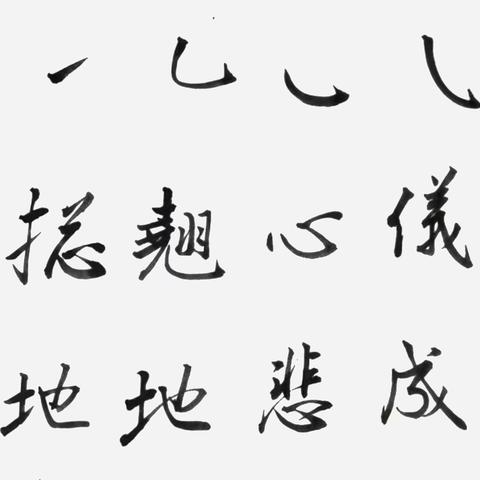 翹 心 儀
地 地 悲 成